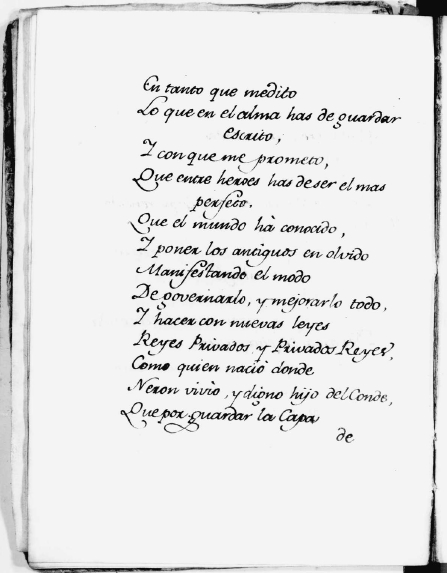 En tanto que medito
Lo que en el alma has de guardar
Escrito,
Y con que me prometo,
Que entre heroes has de ser el mas
perfeto.
Que el mundo hà conocido,
Y poner los antiguos en olvido
Manifestando el modo
De governarlo, y mejorarlo todo,
Y hacer con nuevas leyes
Reyes Privados y Privados Reyes,
Como quien naciò donde
Neron viviò, y digno hijo del Conde,
Que por guardar la Capa
de